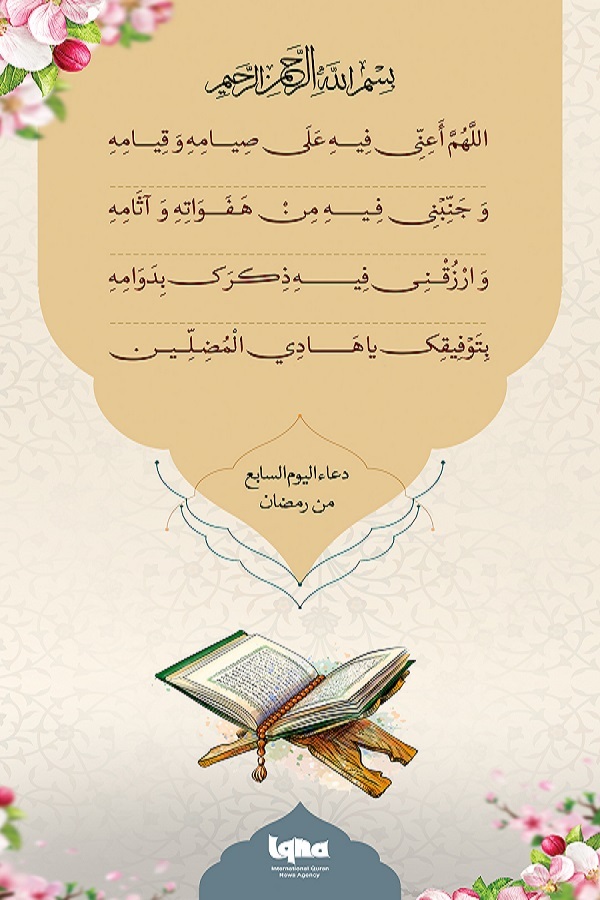 بِسْمِ اللَّهِ الرَّحْمَنِ الرَّحِيمِ
اللَّهُمَّ أَعِنِّي فِيهِ عَلَى صِيامِهِ وَ قِيامِهِ
وَ جَنِّبْنِي فِيهِ مِنْ هَفَوَاتِهِ وَ آثَامِهِ
وَ ارْزُقْنِي فِيهِ ذِكْرَكَ بِدَوَامِهِ
بِتَوْفِيقِكَ يا هَادِيَ الْمُضِلِّينَ
دعاء اليوم السابع
من رمضان
iqna
International Quran
News Agency